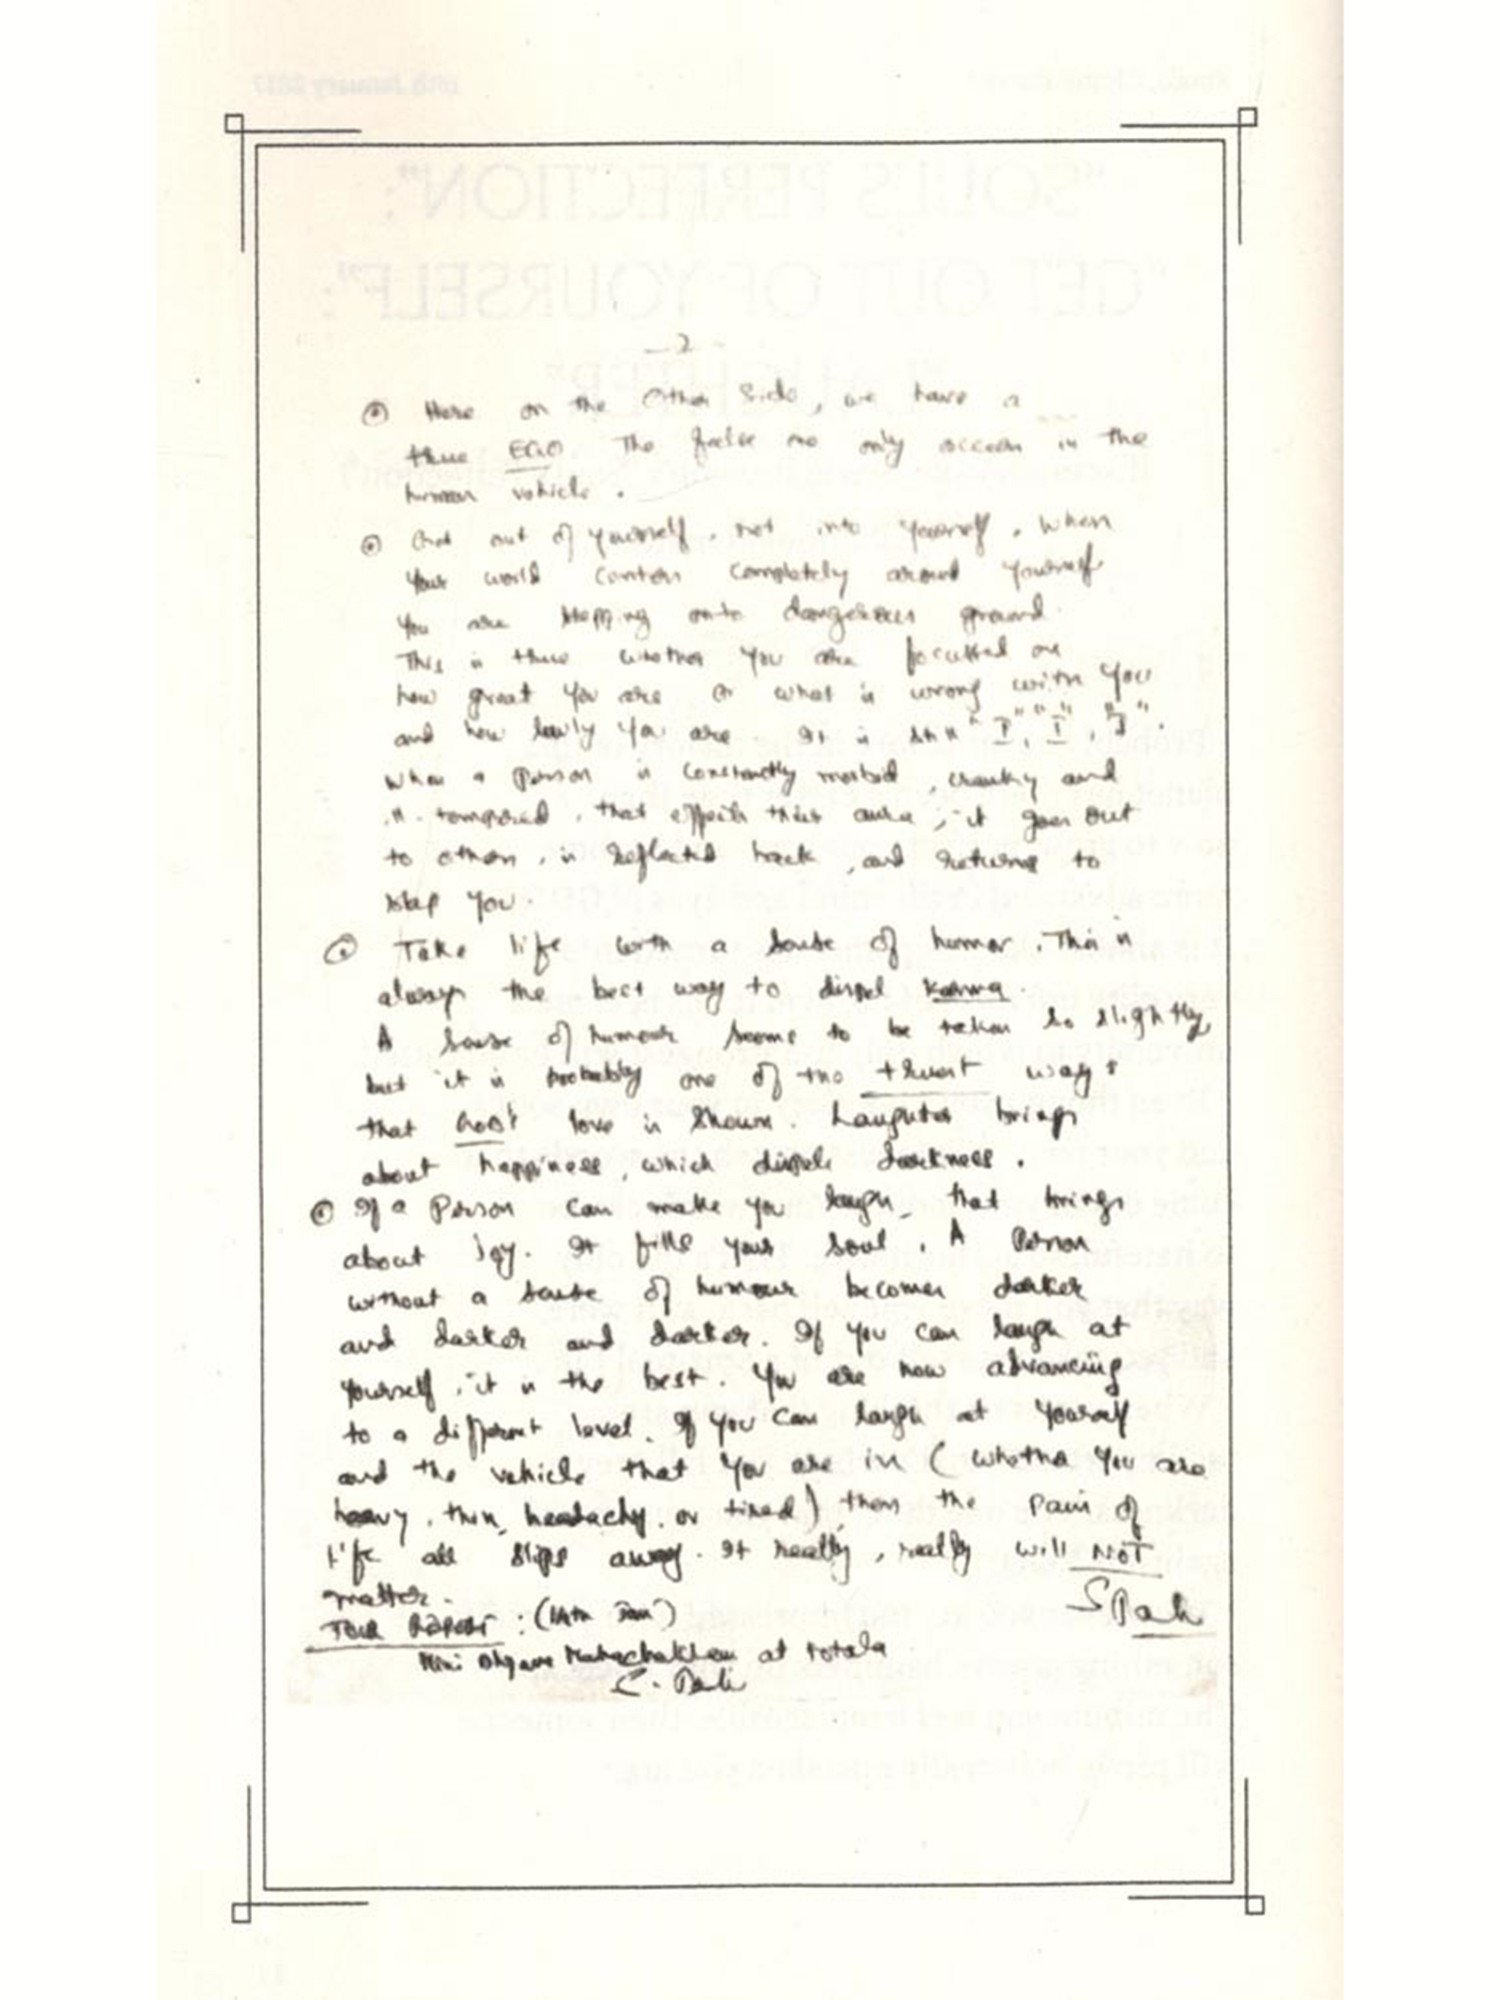 - 2 -
Here on the Other Side, we have a
true EGO The false one only occurs in the
human vehicle.
Get out of yourself, not into yourself. When
Your world centers completely around yourself
You are stepping onto dangerous ground.
This is true whether you are focussed on
how great you are or what is wrong with you
and how lowly you are. It is still "I", "I", "I".
When a person is constantly morbid, cranky and
ill-tempered, that effects their aura, it goes out
to others, is reflected back, and returns to
slap you.
Take life with a sense of humor. This is
always the best way to dispel Karma.
A sense of humour seems to be taken so slightly,
but it is probably one of the truest ways
that God's love is shown. Laughter brings
about happiness, which dispels darkness.
If a Person can make you laugh, that brings
about joy. It fills your soul. A Person
without a sense of humour becomes darker
and darker and darker. If you can laugh at
yourself, it is the best. You are now advancing
to a different level. If you can laugh at yourself
and the vehicle that you are in (whether you are
heavy, thin, headachy, or tired), then the pain of
life all slips away. It really, really will NOT
matter.
Tour Report: (14th Jan)
Mini at